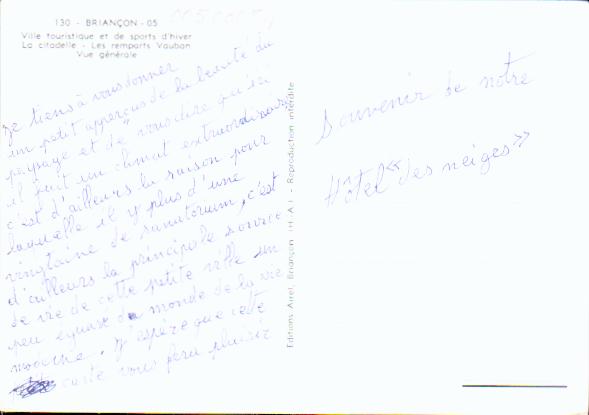 130 - BRIANÇON - 05
Ville touristique et de sports d'hiver
La citadelle - Les remparts Vauban
Vue générale
je tiens à vous donner
un petit apperçus de la beauté du
paysage et de vous dire qu'ici
il fait un climat extraordinaire
c'est d'ailleurs la raison pour
laquelle il y plus d'une
vingtaine de sanatorium, c'est
d'ailleurs la principale source
de vie de cette petite ville un
peu du monde de la vie
moderne. J'espère que cette
carte vous fera plaisir
Editions Airel, Briançon (H.A.) - Reproduction interdite
Souvenir de notre
Hôtel « des neiges »